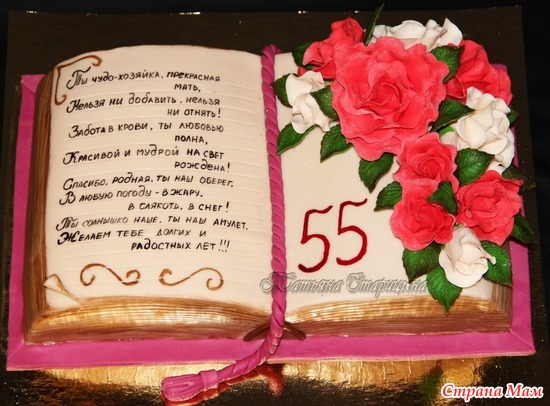 Ты чудо-хозяйка, прекрасная
мать,
Нельзя ни добавить, нельзя
ни отнять!
Забота в крови, ты любовью
полна,
Красивой и мудрой на свет
рождена!
Спасибо, родная, ты наш оберег,
В любую погоду - в жару,
в слякоть, в снег!
Ты солнышко наше, ты наш амулет,
Желаем тебе долгих и
радостных лет!!!
55
Татьяна Старицына
Страна Мам